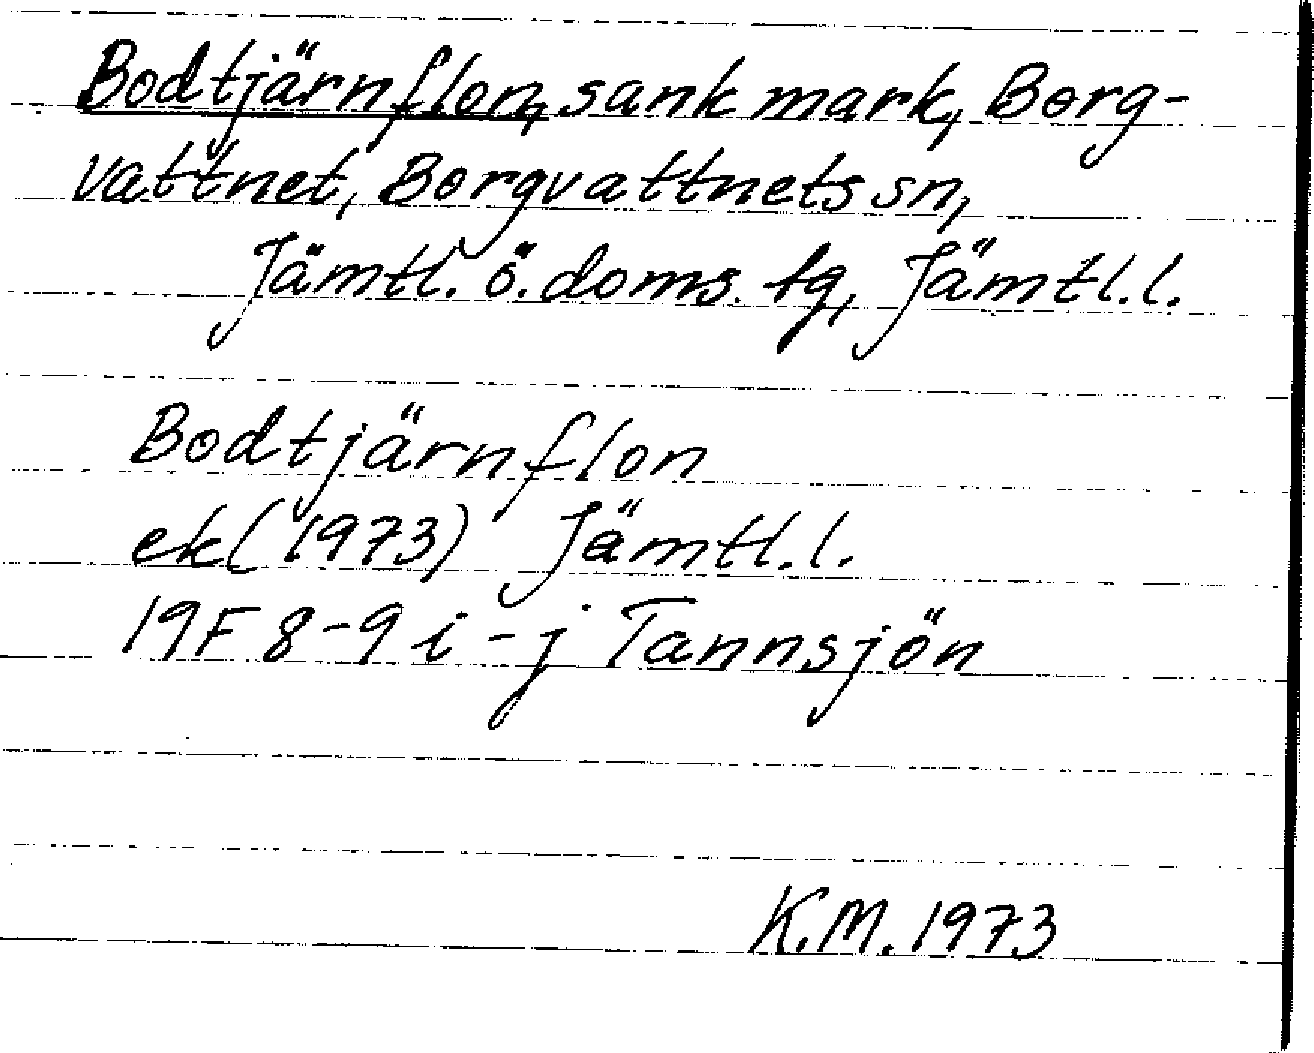 Bodtjärnflon, sank mark, Borg-
vattnet, Borgvattnets sn,
Jämtl. ö. doms. tg, Jämtl. l.
Bodtjärnflon
ek (1973) Jämtl. l.
19F 8-9 i-j Tannsjön
K.M. 1973